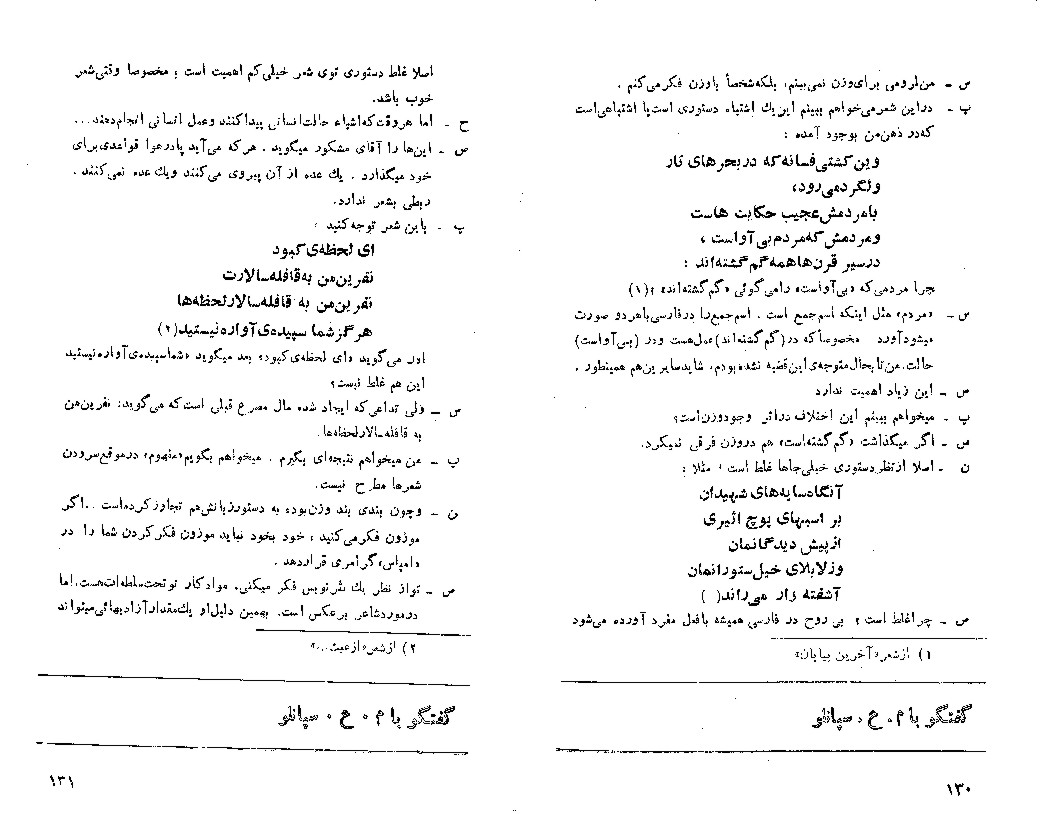 س - من لزومی برای وزن نمی‌بینم، بلکه شخصاً با وزن فکر می‌کنم .
پ - در این شعر می‌خواهم ببینم این یك اشتباه دستوری است یا اشتباهی است
که در ذهن من بوجود آمده :
وین کشتی فسانه که در بحرهای تار
ولگرد می‌رود،
با مردمش عجیب حکایت هاست
ومردمش که مردم بی آواست ،
در سیر قرن‌ها همه گم گشته‌اند :
چرا مردمی که «بی آواست» را می‌گوئی «گم گشته‌اند» ؟(۱)
س - «مردم» مثل اینکه اسم جمع است . اسم جمع را در فارسی با هر دو صورت
میشود آورد مخصوصاً که در (گم گشته‌اند) عمل هست ودر (بی آواست)
حالت. من تا بحال متوجه‌ی این قضیه نشده بودم، شاید سایرین هم همینطور .
س - این زیاد اهمیت ندارد
پ - میخواهم ببینم این اختلاف در اثر وجود وزن است؟
س - اگر میگذاشت «گم گشته‌است» هم در وزن فرقی نمیکرد.
ن - اصلا از نظر دستوری خیلی جاها غلط است ؛ مثلا :
آنگاه سایه‌های شهیدان
بر اسبهای پوچ اثیری
از پیش دیدگانمان
وز لابلای خیل ستورانمان
آشفته زار می‌راند( )
س - چرا غلط است ؟ بی روح در فارسی همیشه با فعل مفرد آورده می‌شود
۱) از شعر «آخرین بیابان»
گفتگو با م . ع . سپانلو
۱۳۰
اصلا غلط دستوری توی شعر خیلی کم اهمیت است ؛ مخصوصا وقتی شعر
خوب باشد.
ح - اما هر وقت که اشیاء حالت انسانی پیدا کنند وعمل انسانی انجام دهند...
س - این‌ها را آقای مشکور میگوید . هر که می‌آید پا در هوا قواعدی برای
خود میگذارد . یك عده از آن پیروی می‌کنند ویك عده نمی‌کنند .
ربطی بشعر ندارد.
پ - باین شعر توجه کنید :
ای لحظه‌ی کبود
نفرین من به قافله سالارت
نفرین من به قافله سالار لحظه‌ها
هر گز شما سپیده‌ی آواره نیستید(۲)
اول می‌گوید «ای لحظه‌ی کبود» بعد میگوید «شما سپیده‌ی آواره نیستید»
این هم غلط نیست؟
س - ولی تداعی‌که ایجاد شده مال مصرع قبلی است که می‌گوید: نفرین من
به قافله سالار لحظه‌ها.
پ - من میخواهم نتیجه‌ای بگیرم . میخواهم بگویم «مفهوم» در موقع سرودن
شعرها مطرح نیست.
ن - وچون بندی بند وزن بوده به دستور زبانش هم تجاوز کرده است ..اگر
موزون فکر می‌کنید ، خود بخود نباید موزون فکر کردن شما را در
«امپاس» گرامری قرار دهد .
س - تو از نظر یك نثر نویس فکر میکنی. مواد کار تو تحت سلطه‌ات هست. اما
در مورد شاعر بر عکس است. بهمین دلیل او یك مقدار آزادیهائی میتواند
۲) از شعر «از عبث...»
گفتگو با م . ع . سپانلو
۱۳۱